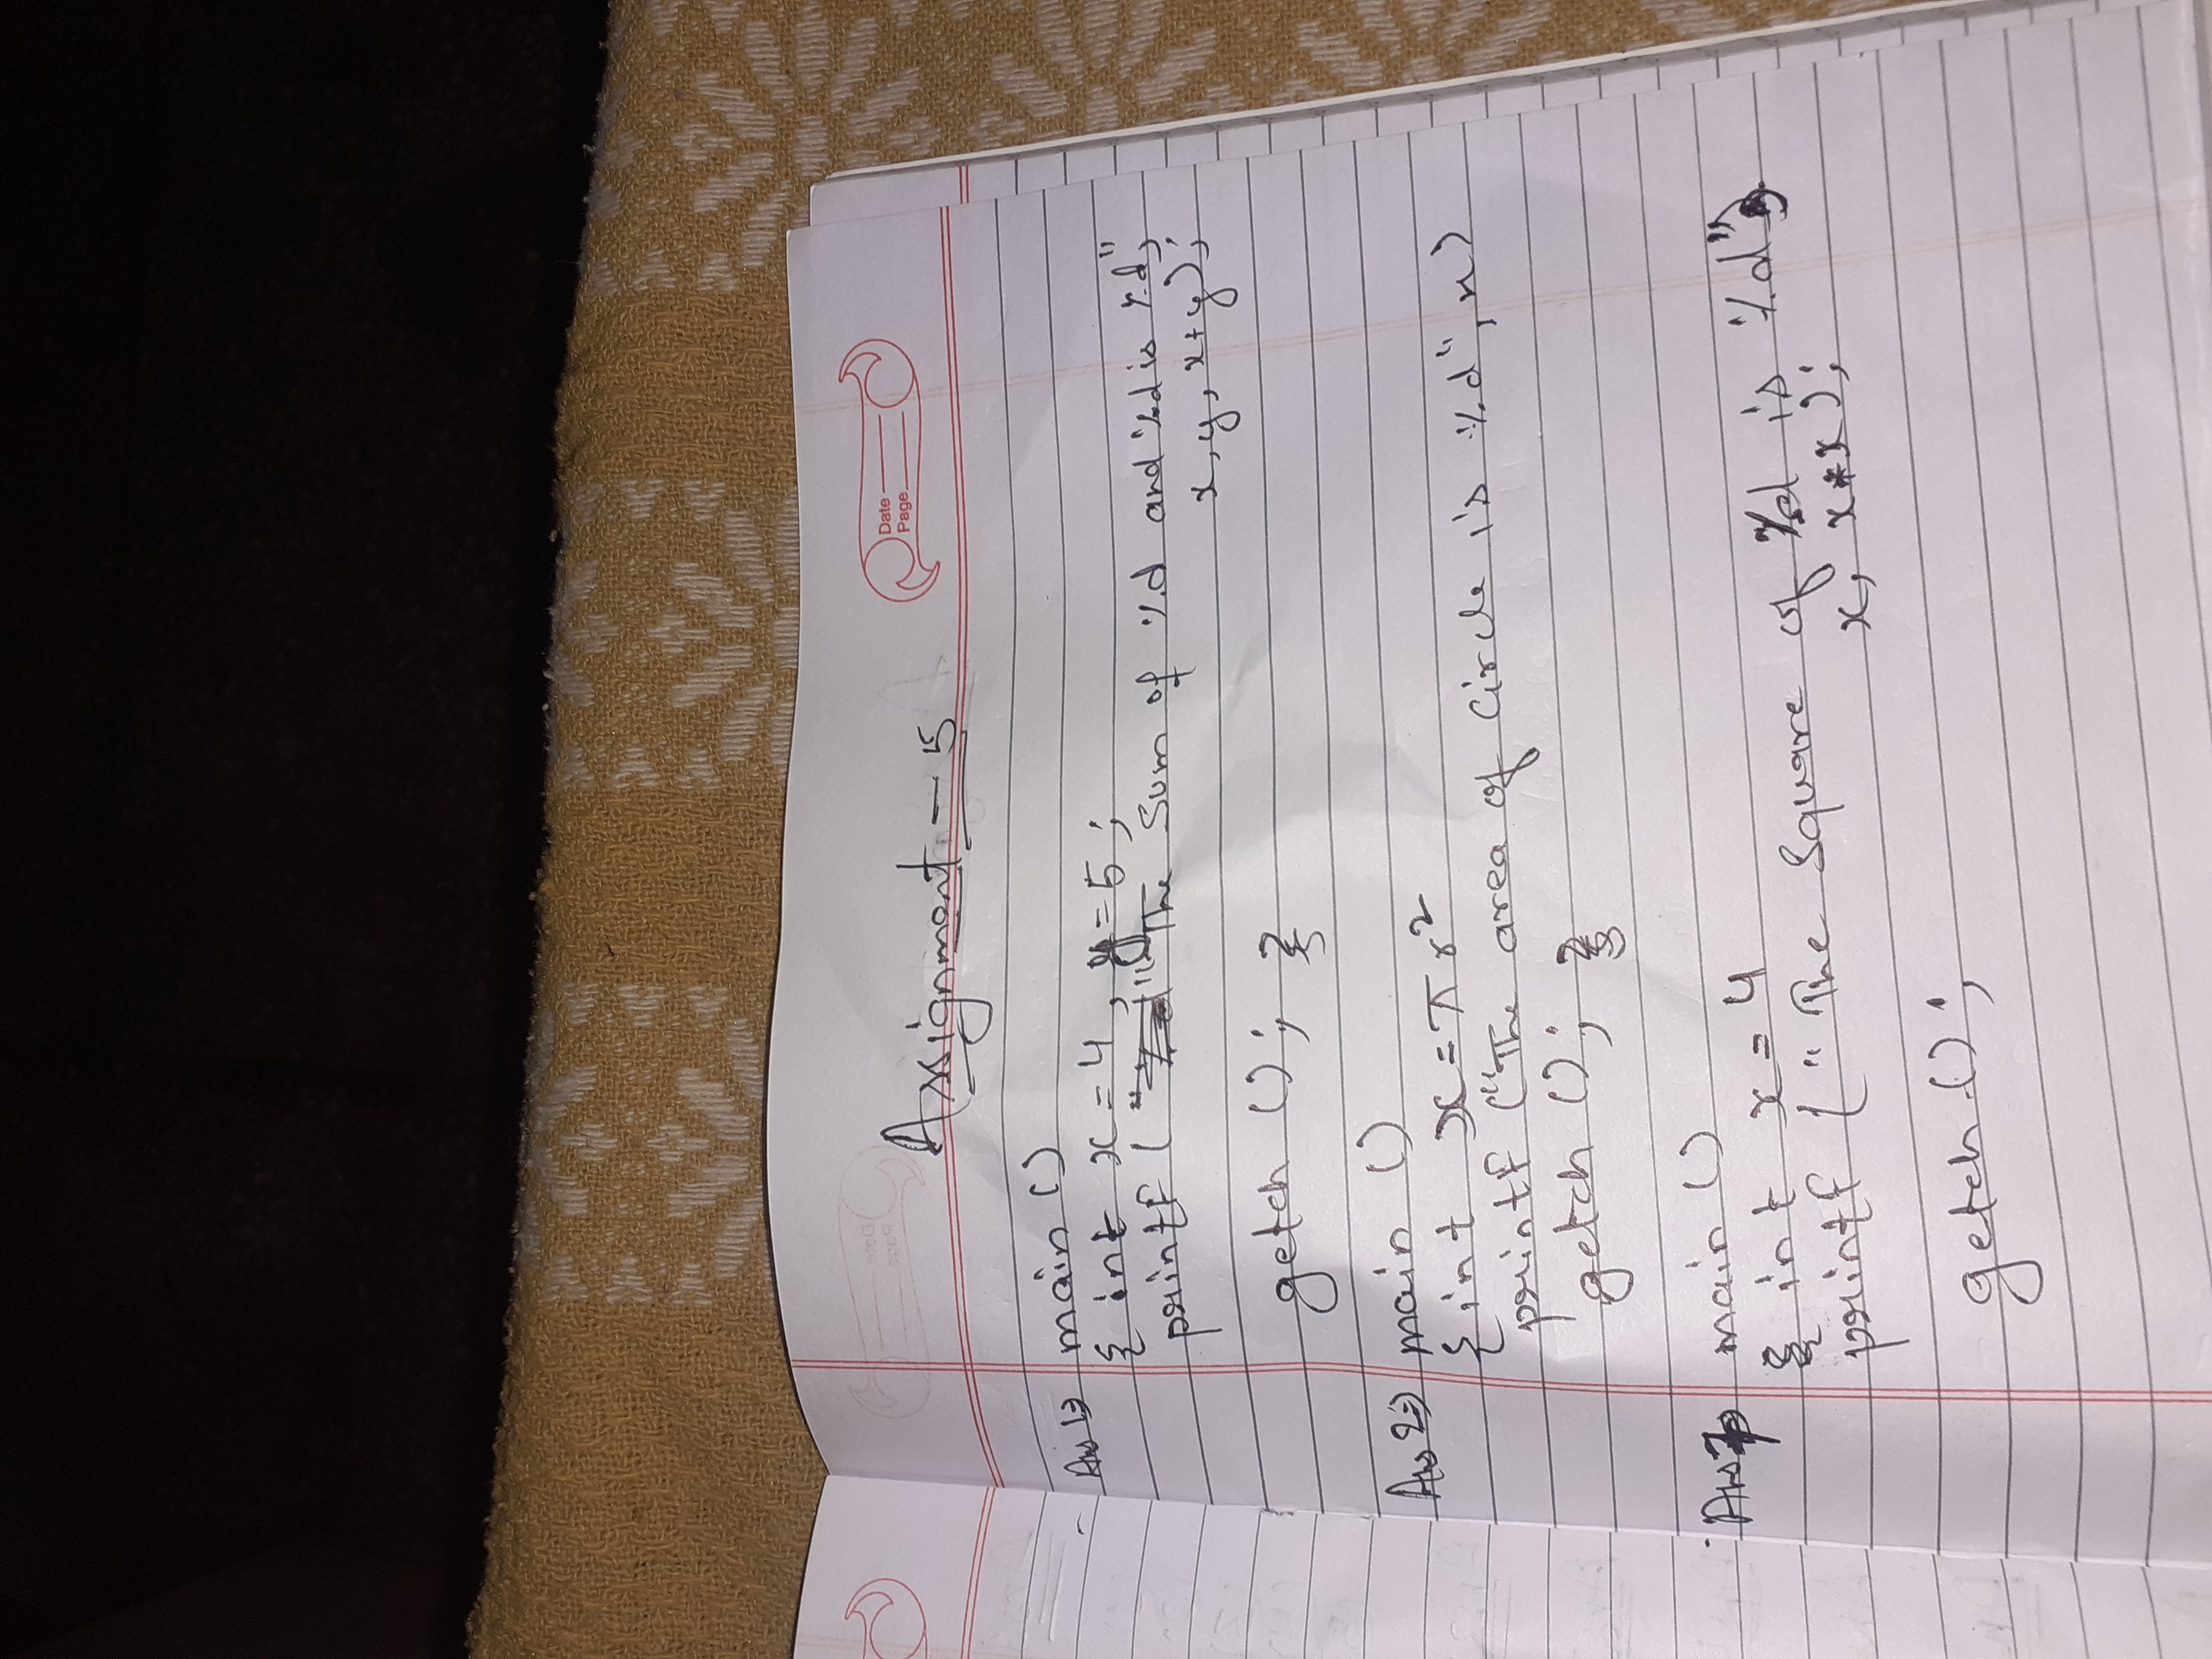 Date
Page
Assignment - 5
Ans 1⇒ main ()
{ int x = 4, y = 5 ;
printf ( " The Sum of %d and %d is %d",
x, y, x+y );
getch () ; }
Ans 2⇒ main ()
{ int x = π r²
printf ("The area of Circle is %d", x)
getch () ; }
Ans 7⇒ main ()
{ int x = 4
printf ( " The Square of %d is %d",
x, x*x );
getch () ;